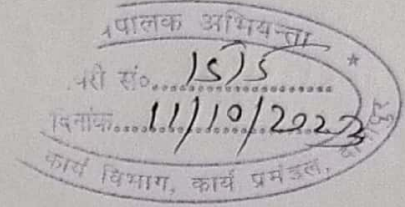 पालक अभियन्ता
यरी सं०......1515......
दिनांक......11/10/2023
कार्य विभाग, कार्य प्रमंडल,